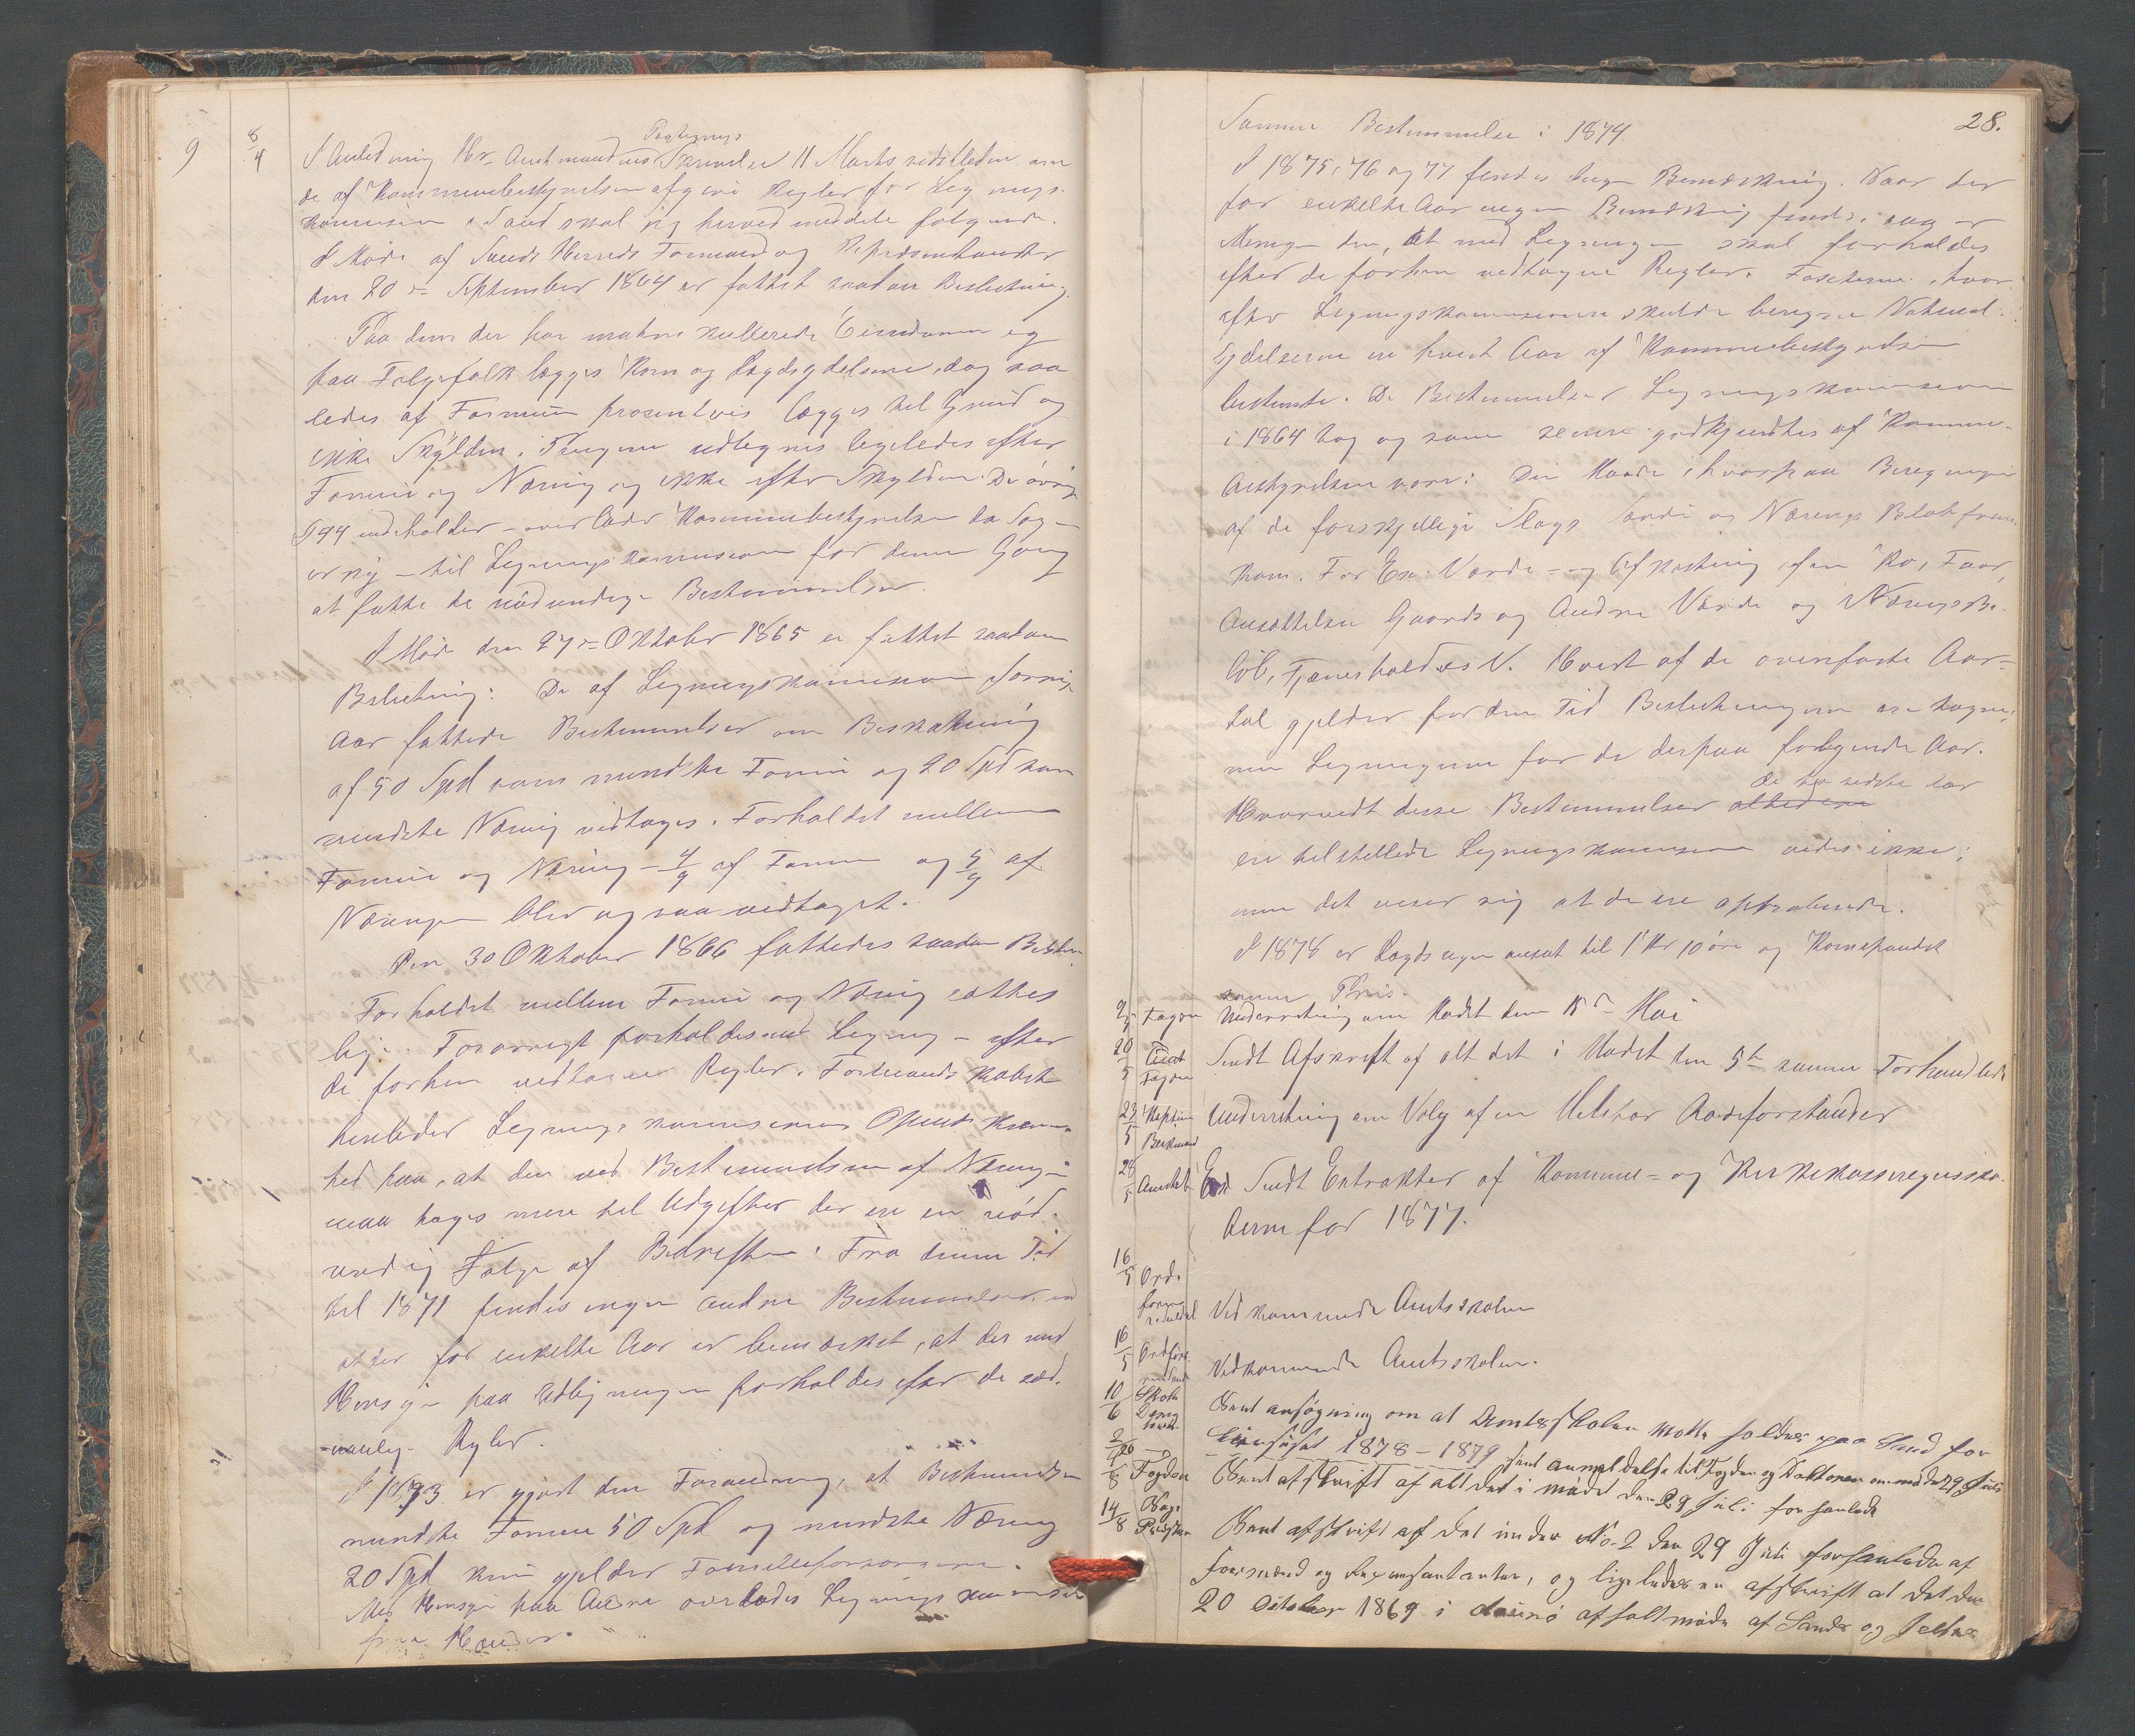 9 8/4 I Anledning Hr. Amtmandens Paategnings Skrivelse 11 Marts sidstleden om
de af Kommunebestyrelsen afgivne Regler for Lignings-
komisionen i Sand skal jeg herved meddele følgende.
I Møde af Sands Herreds Formænd og Repræsentanter
den 20de September 1864 er fattet saadan Beslutning.
Paa dem der har umatrikullerede Eiendomme og
paa Folgefolk lægges Korn og Lægdsydelserne, dog saa
ledes at Formuen prosentvis lægges til Grund og
ikke Skylden. Pengene udlignes ligeledes efter
Formue og Næring og ikke efter Skylden. De øvrige
§ 44 indeholder – overlader Kommunebestyrelsen da Sagen
er ny – til Ligningskommisionen for denne Gang
at fatte de nødvendige Bestemmelser.
I Møde den 27de Oktober 1865 er fattet saadan
Beslutning: De af Ligningskommisionen forrige
Aar fattede Bestemmelser om Beskatning
af 50 Spd som mindste Formue og 20 Spd som
mindste Næring vedtages. Forholdet mellem
Formue og Næring – 4/9 af Formue og 5/9 af
Næringen blev ogsaa vedtaget.
Den 30 Oktober 1866 fattedes saadan Beslutn.
Forholdet mellem Formue og Næring sattes
lige. Forøvrigt forholdes med Ligning – efter
de forhen vedtagne Regler. Formandskabet
henleder Ligningskommisionens Opmærksom
hed paa, at der ved Bestemmelsen af Næringen
maa tages mere til Udgifter der ere en nød-
vendig Følge af Bedriften. Fra denne Tid
til 1871 findes ingen andre Bestemmelser end
at der for enkelte Aar er bemærket, at der med
Hensyn paa Udligningen forholdes efter de sæd-
vanlige Regler.
I 1873 er gjort den Forandring, at Bestemmelsen
mindste Formue 50 Spd og mindste Næring
20 Spd kun gjelder Familieforsørgere.
Med Hensyn paa Andre overlades Ligningskommisionen
frie Hænder.
28.
Samme Bestemmelse i 1874
I 1875, 76 og 77 findes Ingen Bemærkning. Naar der
for enkelte Aar ingen Bemærkning findes, saa er
Meningen den, at med Ligningen skal forholdes
efter de forhen vedtagne Regler. Taxterne, hvor
efter Ligningskommisionen skulde beregne Natural-
ydelserne ere hvert Aar af Kommunebestyrelsen
bestemte. De Bestemmelser Ligningskommisionen
i 1864 tog og som senere godkjendtes af Kommune-
bestyrelsen vare: Den Maade, hvorpaa Beregningen
af de forskjellige Slags Værdi og Nærings Beløb frem-
kom. For Ex: Værdi – og Afkastning af en Ko, Faar,
Ansættelsen Gaards og Andre Værdi og Nærings Be-
løb, Tjenerhold o.s.v. Hvert af de ovenførte Aar-
tal gjelder for den Tid Beslutningerne ere tagne,
men Ligningerne for de derpaa følgende Aar.
Hvorvidt disse Bestemmelser de to sidste Aar
ere tilstillede Ligningskommisionen vides ikke;
men det viser sig at de ere approberede.
I 1878 er Lægdsugen ansat til 1 Kr 10 øre og Kornspandet
samme Pris.
9/5 Fogden Underretning om Mødet den 15de Mai
20/5 Amt Fogden Sendt Afskrift af alt det i Mødet den 5te samme Forhandlede
23/5 Underretning om Valg af en Rodeforstander
28/5 Amtet Sendt Extrakter af Kommune- og Kirkekasseregnska-
berne for 1877.
16/5 Ord
fører Vedkommende Amtsskolen
16/5 Ordføre Vedkommende Amtsskolen.
10/6 Skole Sent ansøgning om at Amtsskolen motte holdes paa Sand for
2/7 20 Skoleaaret 1878–1879 sent anmeldelse til Fogden og Doktoren om mødet 29 Juli
/8 Fogden Sent afskrift af alt det i møde den 29 Juli forhanlede
14/8 Sogne Præsten Sent afskrift af det under No. 2 den 29 Juli forhanlede af
Formænd og Repræsentanter, og ligeledes en afskrift at det den
20 October 1869 i afholt møde af Sands og Jelse